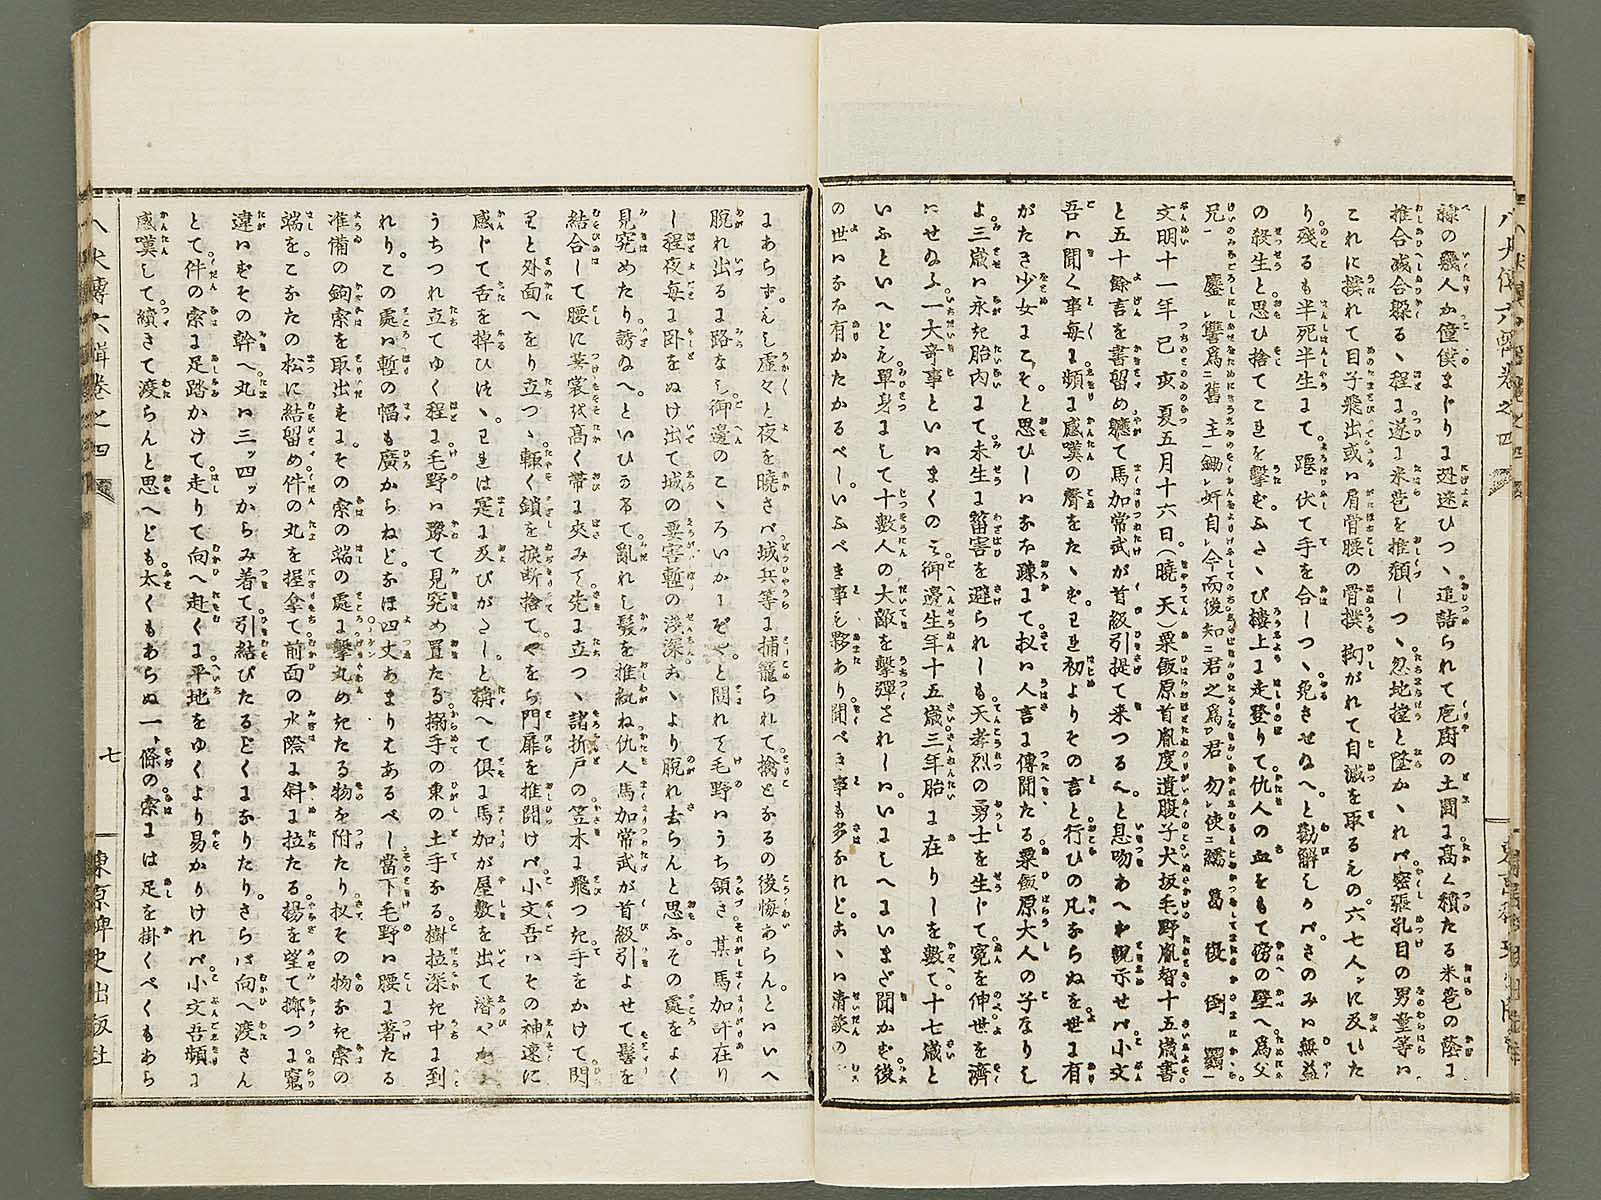 八犬傳六輯卷之四
祿の幾人か僮僕まじりに迯迷ひつゝ追詰られて庖厨の土間に高く積たる米苞の蔭に
推合滅合躱るゝ程に遂に米苞を推頽しつゝ忽地撞と墜かゝれバ密張孔目の男童等ハ
これに撲れて目子飛出或ハ肩骨腰の骨撲拗がれて自滅を取るもの六七人に及びた
り殘るも半死半生にて蹍伏て手を合しつゝ免させ給へと勸解しかバさのみハ無益
の殺生と思ひ捨てこれを撃ずふたゝび樓上に走登りて仇人の血をもて傍の壁へ爲父
兄 鏖讐爲舊主鋤奸自今而後知君之爲君勿使繻葛復倒羈
文明十一年己亥夏五月十六日(曉天)粟飯原首胤度遺腹子犬坂毛野胤智十五歲書
と五十餘言を書留め軈て馬加常武が首級引提て来つるへと息吻あへず説示せバ小文
吾ハ聞く事每に頻に感嘆の聲をたゝずこれ初よりその言と行ひの凡ならぬを世に有
がたき少女にこそと思ひしハなほ疎にて扠ハ人言に傳聞たる粟飯原大人の子なりし
よ三歲ハ永き胎内にて未生に笛害を避られしも天孝烈の勇士を生じて寃を伸世を濟
ハせ給ふ一大奇事といハまくのミ御邊生年十五歲三年胎に在りしを數て十七歲と
いふといへども單身にして十數人の大敵を擊殫されしハいにしへにいまだ聞かず後
の世にハなほ有かたかるべしいふべき事も夥あり聞べき事も多なれどもこゝハ清談の
にあらずもし虛々と夜を曉さバ城兵等に捕籠られて擒となるの後悔あらんといへ
脫れ出るに路なし御邊のこゝろいかにぞやと問れて毛野ハうち領き某馬加許在り
し程夜每に卧をぬけ出て城の要害塹の淺深こゝより脫れ去らんと思ふその處をよく
見究めたり誘給へといひかけて亂れし髮を推紈ね仇人馬加常武が首級引よせて髻を
結合して腰に著裳袂高く帶に夾みて先に立つゝ諸折戶の笠木に飛つき手をかけて閃
りと外面へをり立つゝ輙く鎖を捩斷捨てやをら門扉を推開けバ小文吾ハその神速に
感じて舌を掉ひけゝこれは寔に及びがたしと稱へて俱に馬加が屋敷を出て潛やかに
うちつれ立てゆく程に毛野ハ豫て見究め置たる搦手の東の土手なる樹拉深き中に到
れりこの處ハ塹の幅も廣からねどなほ四丈あまりもあるべし當下毛野ハ腰に著たる
准備の鉤索を取出すにその索の端の處に擊丸めきたる物を附たり扠その物なき索の
端をこなたの松に結留め件の丸を握拿て前面の水際に斜に拉たる楊を望て擲つに窺
違ハずその幹へ丸ハ三ッ四ッからみ着て引結びたるごとくになりたりさらば向へ渡さん
とて件の索に足踏かけて走りて向へ赴くに平地をゆくより易かりけれバ小文吾頻に
感嘆して續きて渡らんと思へども太くもあらぬ一條の索には足を掛くべくもあら
八犬傳六輯卷之四
七
東京稗史出版社